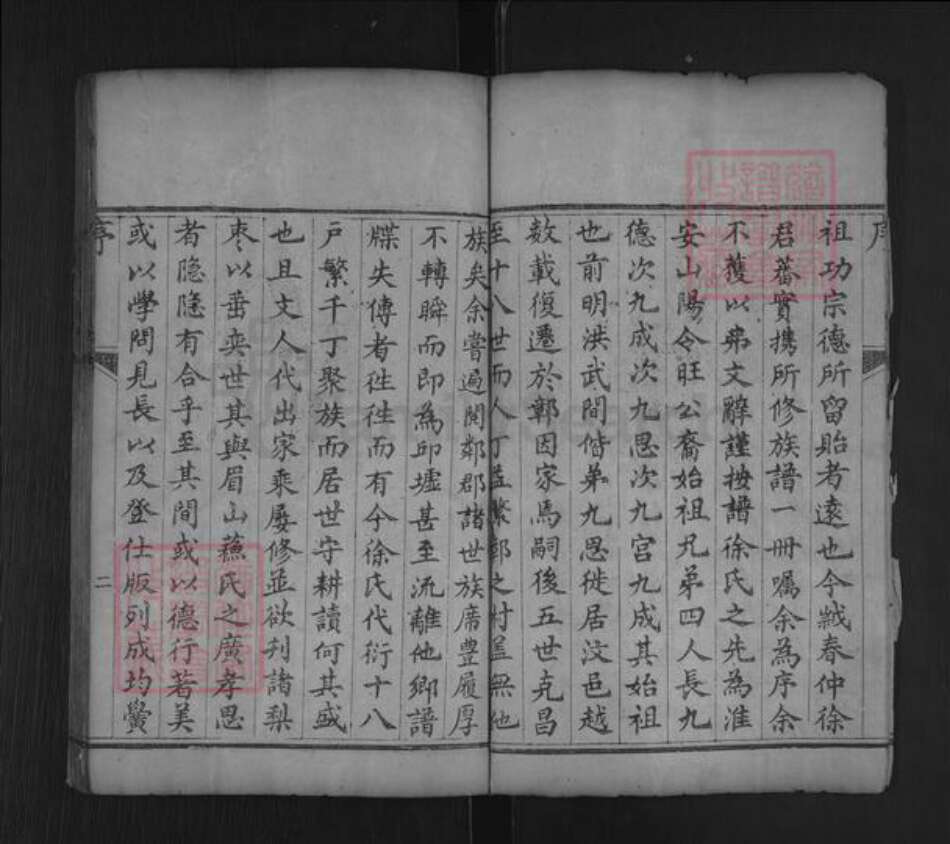 序
祖功宗德所留貽者遠也今歲春仲徐
君蕃實攜所修族譜一冊囑余為序余
不獲以弗文辭謹按譜徐氏之先為淮
安山陽令旺公裔始祖兄弟四人長九
德次九成次九思次九宫九成其始祖
也前明洪武間偕弟九思徙居汶邑越
数載復遷於鄣因家馬嗣後五世克昌
至十八世而人丁益繁鄣之村盖無他
族矣余嘗遍閱鄰郡諸世族席豊履厚
不轉瞬而即為邱墟甚至流離他鄉譜
牒失傳者徃徃而有今徐氏代衍十八
戸繁千丁聚族而居世守耕讀何其盛
也且文人代出家乘屡修並欲刋諸梨
枣以垂奕世其與眉山蘓氏之廣孝思
者隐隐有合乎至其間或以德行著美
或以學問見長以及登仕版列成均黌
序
二